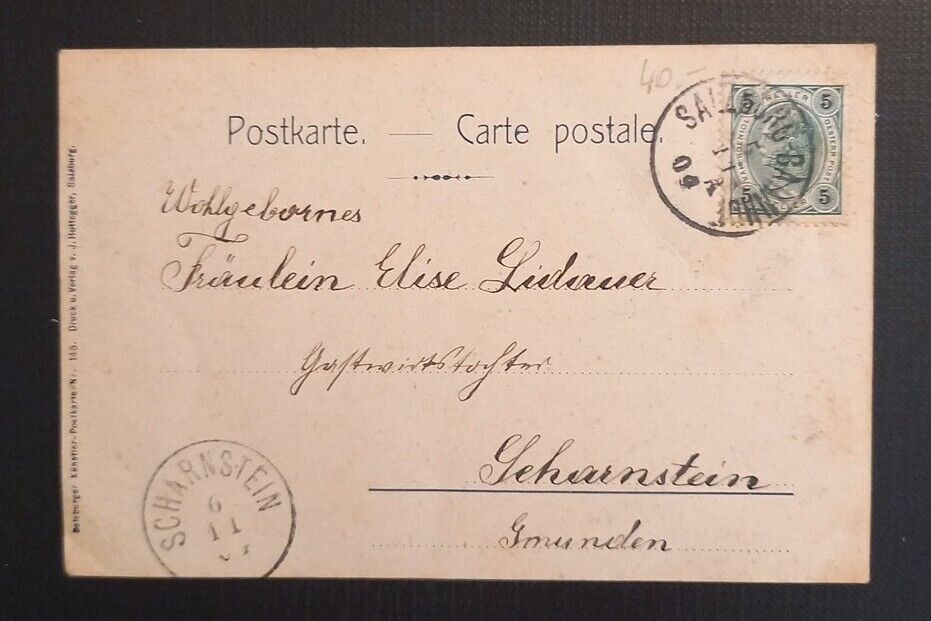 40.-
Postkarte. — Carte postale.
SALZBURG-BAHNHOF
5
11
04
5 HELLER 5
KAIS. KÖNIGL. OESTERR. POST
5 HELLER 5
Wohlgebornes
Fräulein Elise Lidauer
Gastwirtstochter
Scharnstein
Gmunden
SCHARNSTEIN
6
11
Salzburger Künstler-Postkarte-Nr. 145. Druck u. Verlag v. J. Huttegger, Salzburg.